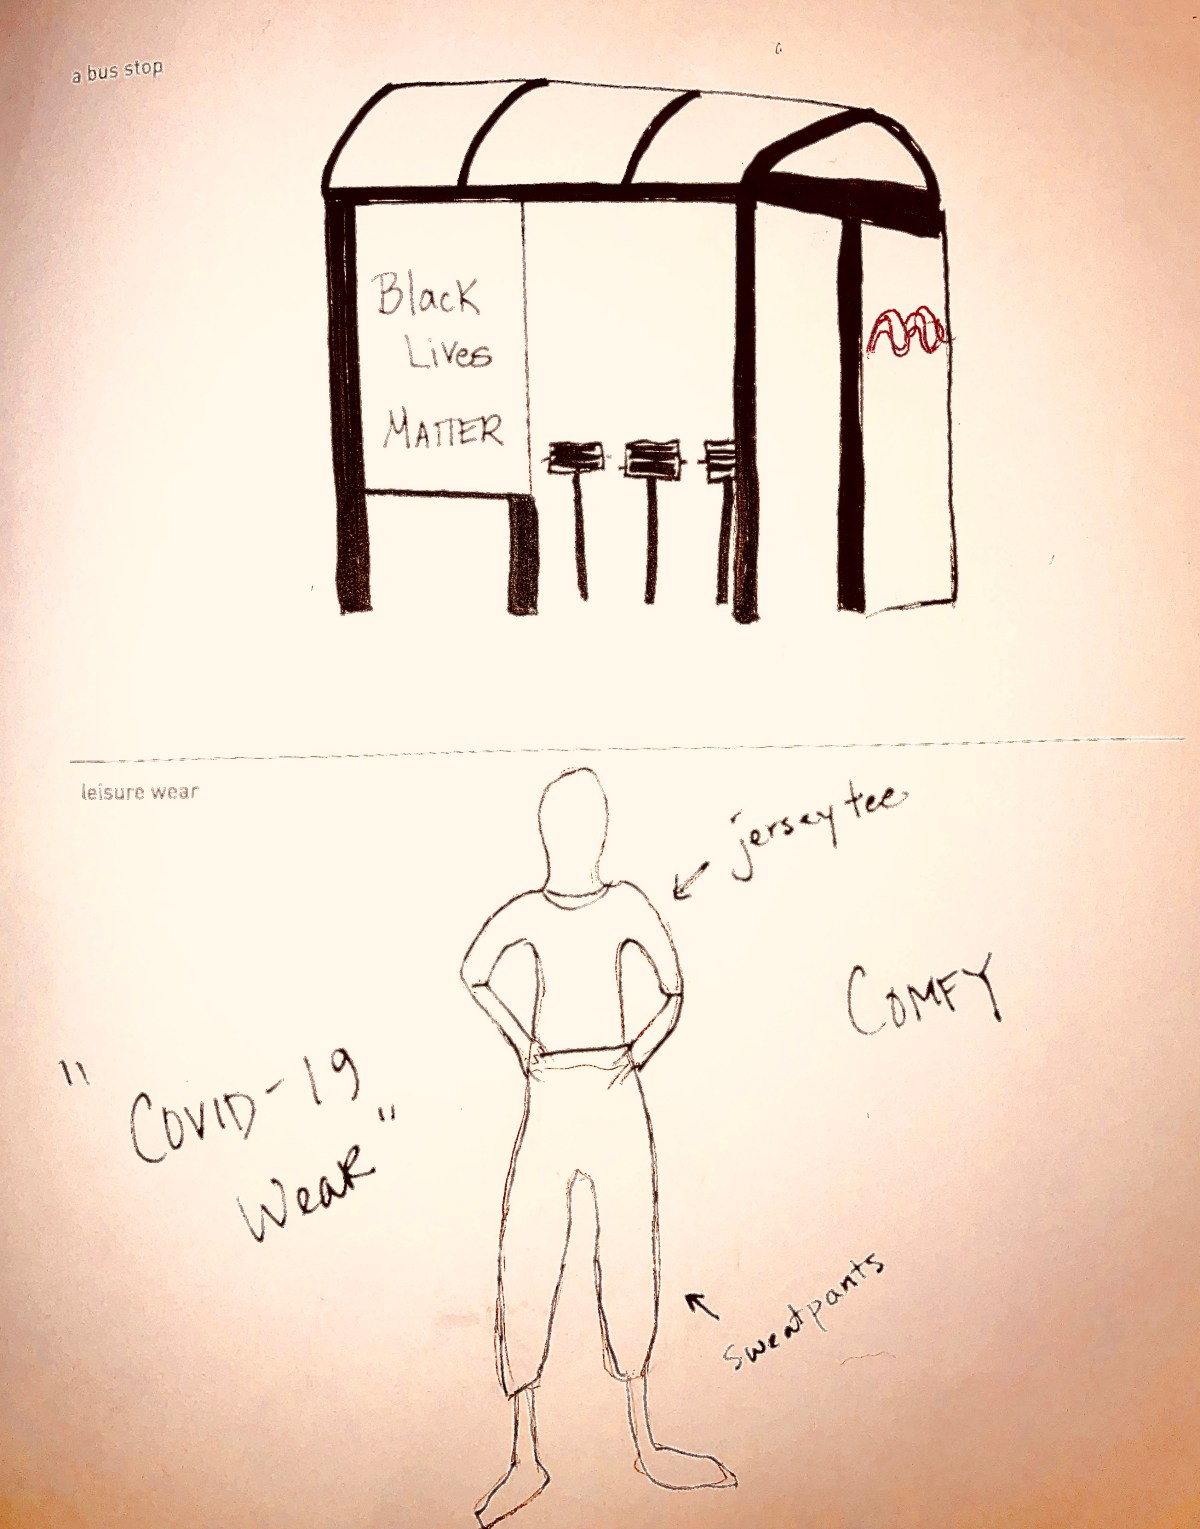 a bus stop
Black
Lives
MATTER
leisure wear
jersey tee
COMFY
"COVID-19
Wear"
sweatpants